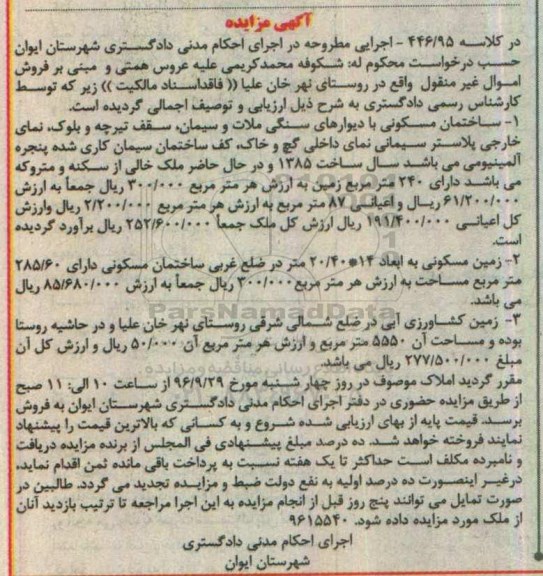 آگهی مزایده
در کلاسه ۴۴۶/۹۵ - اجرایی مطروحه در اجرای احکام مدنی دادگستری شهرستان ایوان
حسب درخواست محکوم له: شکوفه محمدکریمی علیه عروس همتی و مبنی بر فروش
اموال غیر منقول واقع در روستای نهر خان علیا (( فاقداسناد مالکیت )) زیر که توسط
کارشناس رسمی دادگستری به شرح ذیل ارزیابی و توصیف اجمالی گردیده است.
۱- ساختمان مسکونی با دیوارهای سنگی ملات و سیمان، سقف تیرچه و بلوک، نمای
خارجی پلاستر سیمانی نمای داخلی گچ و خاک، کف ساختمان سیمان کاری شده پنجره
آلمینیومی می باشد سال ساخت ۱۳۸۵ و در حال حاضر ملک خالی از سکنه و متروکه
می باشد دارای ۲۴۰ متر مربع زمین به ارزش هر متر مربع ۳۰۰/۰۰۰ ریال جمعاً به ارزش
۶۱/۲۰۰/۰۰۰ ریال و اعیانی ۸۷ متر مربع به ارزش هر متر مربع ۲/۲۰۰/۰۰۰ ریال وارزش
کل اعیانی ۱۹۱/۴۰۰/۰۰۰ ریال ارزش کل ملک جمعاً ۲۵۲/۶۰۰/۰۰۰ ریال برآورد گردیده
است.
۲- زمین مسکونی به ابعاد ۱۴*۲۰/۴۰ متر در ضلع غربی ساختمان مسکونی دارای ۲۸۵/۶۰
متر مربع مساحت به ارزش هر متر مربع ۳۰۰/۰۰۰ ریال جمعاً به ارزش ۸۵/۶۸۰/۰۰۰ ریال
می باشد.
ParsNamadData
۳- زمین کشاورزی آبی در ضلع شمالی شرقی روستای نهر خان علیا و در حاشیه روستا
بوده و مساحت آن ۵۵۵۰ متر مربع و ارزش هر متر مربع آن ۵۰/۰۰۰ ریال و ارزش کل آن
مبلغ ۲۷۷/۵۰۰/۰۰۰ ریال می باشد.
مقرر گردید املاک موصوف در روز چهار شنبه مورخ ۹۶/۹/۲۹ از ساعت ۱۰ الی: ۱۱ صبح
از طریق مزایده حضوری در دفتر اجرای احکام مدنی دادگستری شهرستان ایوان به فروش
برسد. قیمت پایه از بهای ارزیابی شده شروع و به کسانی که بالاترین قیمت را پیشنهاد
نمایند فروخته خواهد شد. ده درصد مبلغ پیشنهادی فی المجلس از برنده مزایده دریافت
و نامبرده مکلف است حداکثر تا یک هفته نسبت به پرداخت باقی مانده ثمن اقدام نماید،
درغیر اینصورت ده درصد اولیه به نفع دولت ضبط و مزایده تجدید می گردد. طالبین در
صورت تمایل می توانند پنج روز قبل از انجام مزایده به این اجرا مراجعه تا ترتیب بازدید آنان
از ملک مورد مزایده داده شود. ۹۶۱۵۵۴۰
اجرای احکام مدنی دادگستری
شهرستان ایوان